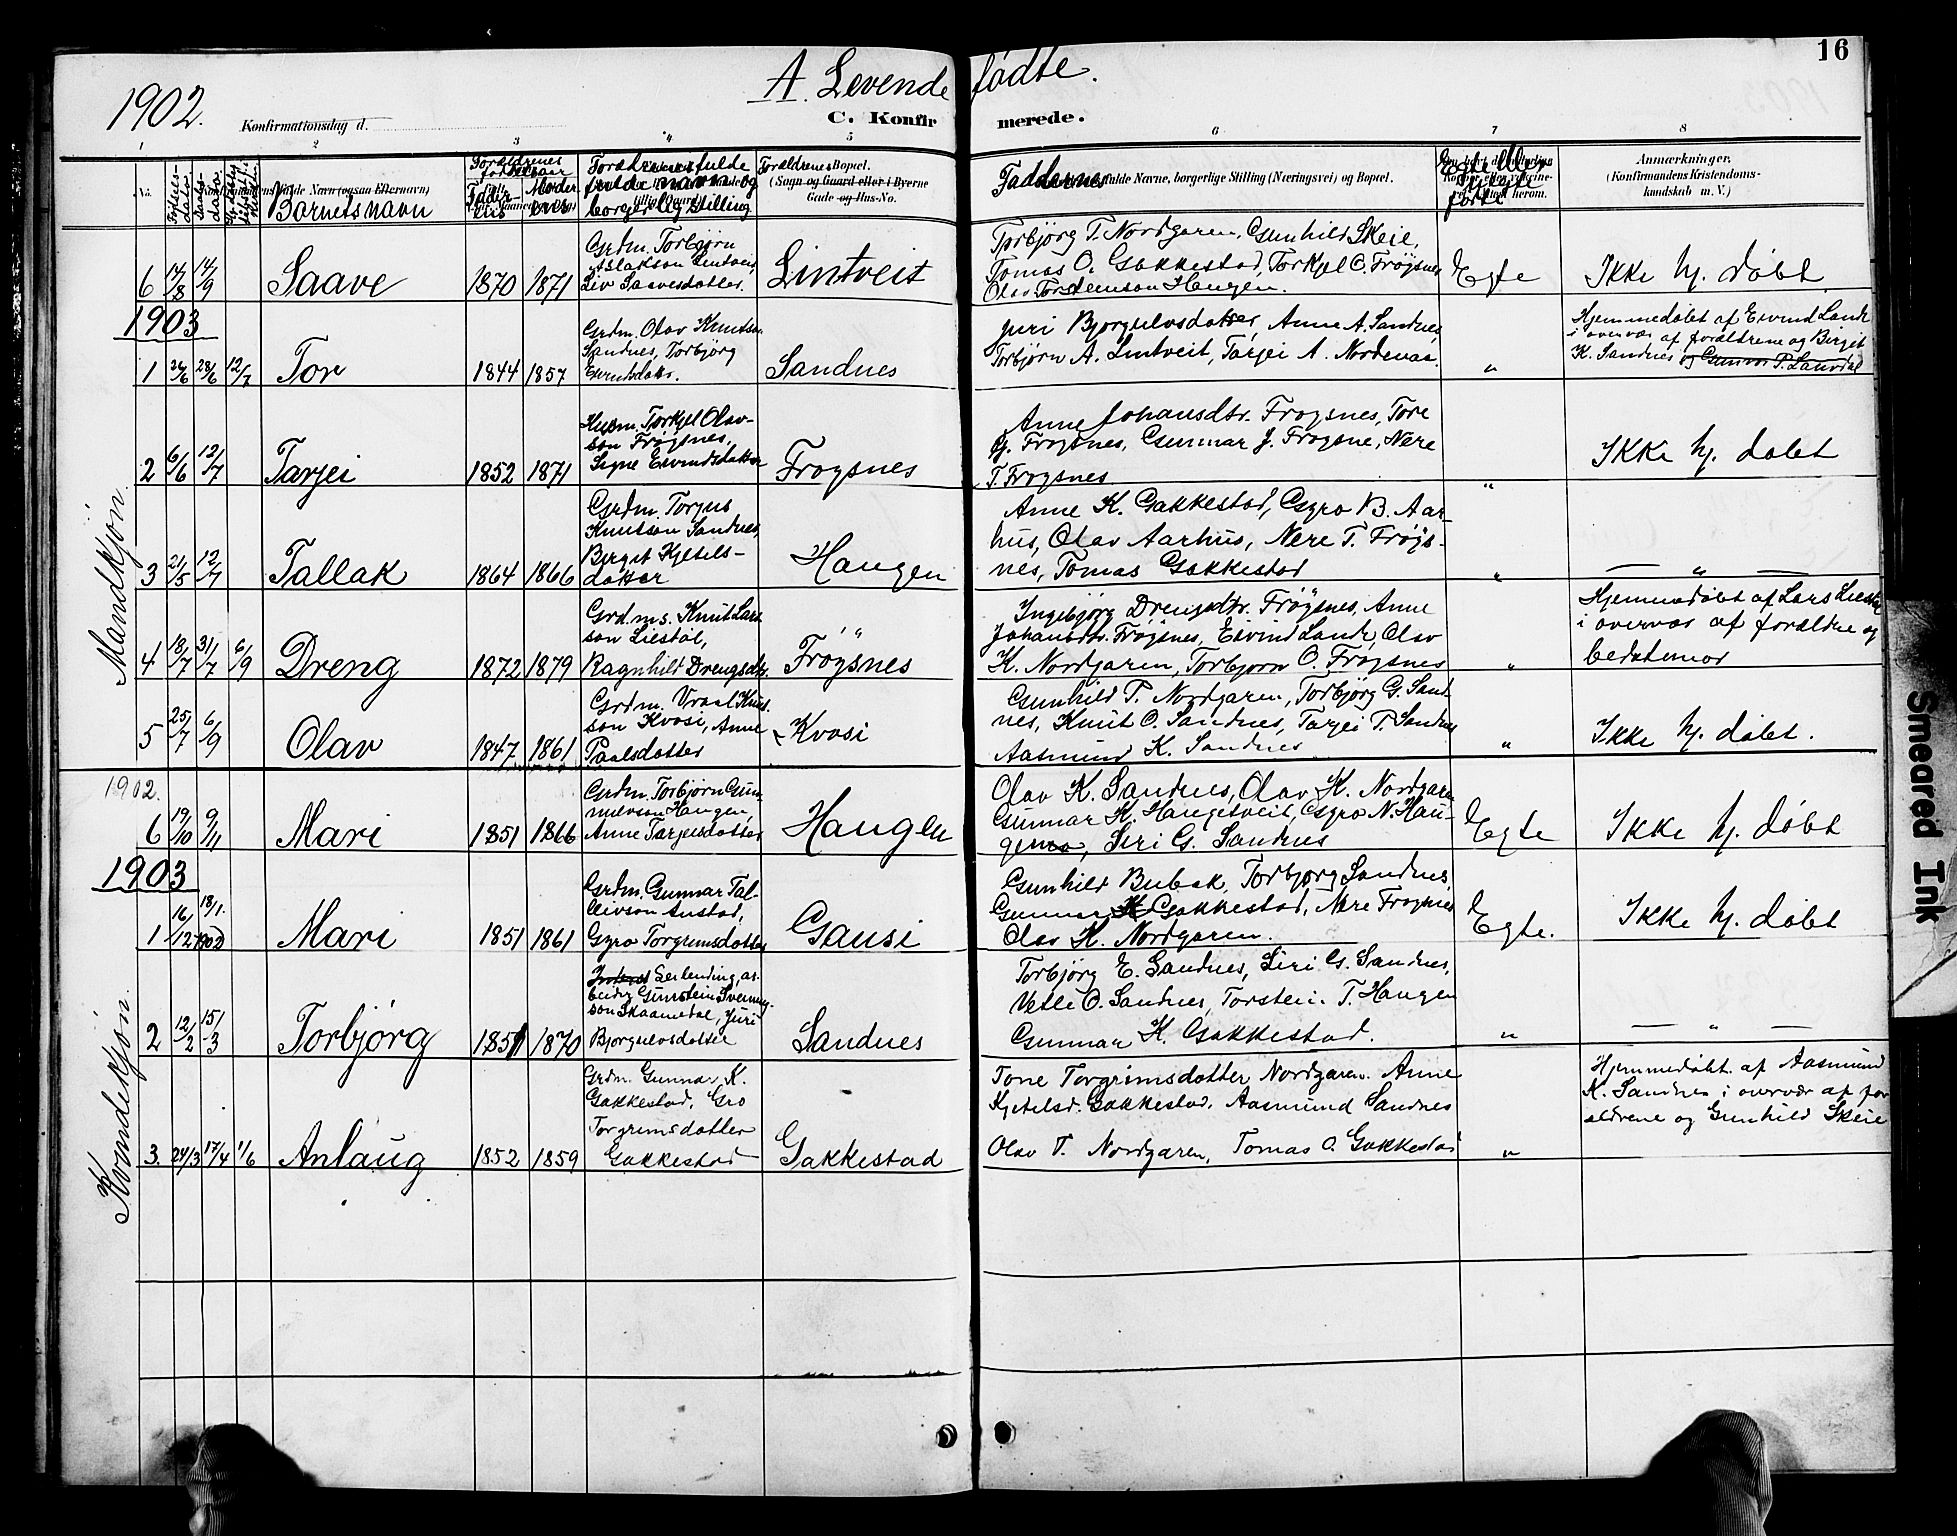 16
A. Levende fødte.
1902. Konfirmationsdag d.
C. Konfirmerede.
1 2 3 4 5 6 7 8
No. Fødsels-dato Daabs-dato Barnets navn
Forældrenes fødselsaar Faderens Moderens
Forældrenes fulde navn og borgerlig Stilling
Forældrenes Bopæl. (Sogn og Gaard eller i Byerne Gade og Hus-No.
Faddernes fulde Navne, borgerlige Stilling (Næringsvei) og Bopæl.
Egte eller uegte født
Anmærkninger.
(Konfirmandens Kristendoms-
kundskab m. V.)
Mandkjøn.
6 14/8 14/9 Saave 1870 1871
Grdm. Torbjørn
Aslakson Lintveit,
Liv Saavesdotter.
Lintveit
Torbjörg T. Nordgaren, Gunhild Skeie,
Tomas O. Gakkestad, Torkjel O. Frøysnes
Olav Torsteinson Haugen.
Egte
Ikke hj. døbt.
1903
1 26/6 28/6 12/7 Tor 1844 1857
Grdm. Olav Knutson
Sandnes, Torbjörg
Eivindsdotter.
Sandnes
Juri Bjorgulvsdotter, Anne A. Sandnes,
Torbjörn A. Lintveit, Tarjei A. Nordenaa.
"
Hjemmedøbt af Eivind Lande
i overvær af forældrene og Birget
K. Sandnes og Gunvor P. Laurdal
2 6/6 12/7 Tarjei 1852 1871
Husm. Torkjel Olav-
son Frøysnes,
Signe Eivindsdotter
Froysnes
Anne Johansdtr. Froysnes, Tore
G. Froysnes, Gunnar J. Froysne, Nere
T. Froysnes
"
Ikke hj. døbt
3 21/5 12/7 Tallak 1864 1866
Grdm. Torjus
Knutson Sandnes,
Birget Kjetels-
dotter
Haugen
Anne K. Gakkestad, Gyro B. Aar-
hus, Olav Aarhus, Nere T. Frøys-
nes, Tomas Gakkestad
"
— " —
4 18/7 31/7 6/9 Dreng 1872 1879
Grdms. Knut Lars-
son Liestøl,
Ragnhild Drengsdtr.
Frøysnes
Ingebjörg Drengsdtr. Frøysnes, Anne
Johansdtr. Frøysnes, Eivind Lande, Olav
K. Nordgaren, Torbjorn O. Frøysnes
"
Hjemmedøbt af Lars Liestøl
i overvær af forældre og
bedstemor
5 25/7 6/9 Olav 1847 1861
Grdm. Vraal Knut-
son Kvasi, Anne
Paalsdotter
Kvasi
Gunhild T. Nordgaren, Torbjörg G. Sand-
nes, Knut O. Sandnes, Tarjei T. Sandnes
Aasmund K. Sandnes
"
Ikke hj. døbt.
Kvindekjøn.
1902.
6 19/10 9/11 Mari 1851 1866
Grdm. Torbjørn Gun-
nulvson Haugen,
Anne Tarjeisdotter
Haugen
Olav K. Sandnes, Olav K. Nordgaren
Gunnar K. Haugetveit, Gyro N. Hau-
gens, Siri G. Sandnes
Egte
Ikke hj. døbt
1903
1 16/12 1902 18/1. Mari 1851 1861
Grdm. Gunnar Tal-
leivson Austad,
Gyro Torgrimsdotter
Gausi
Gunhild Bubak, Torbjorg Sandnes,
Gunnar K Gakkestad, Nere Froysnes
Olav K. Nordgaren.
Egte.
Ikke hj. døbt
2 12/2 15/3 Torbjörg 1851 1870
Gunstein Svenung-
son Skaamedal, Juri
Bjorgulvsdotter
Sandnes
Torbjørg E. Sandnes, Siri G. Sandnes,
Vetle O. Sandnes, Torstein T. Haugen
Gunnar K. Gakkestad.
"
— " —
3. 24/3 17/4 1/6 Anlaug 1852 1859
Grdm. Gunnar K.
Gakkestad, Gro
Torgrimsdotter
Gakkestad
Gakkestad
Tone Torgrimsdotter Nordgaren. Anne
Kjetelsd. Gakkestad, Aasmund Sandnes
Olav T. Nordgaren, Tomas O. Gakkestad
"
Hjemmedøbt af Aasmund
K. Sandnes i overvær af for
ældrene og Gunhild Skeie
Smeared Ink